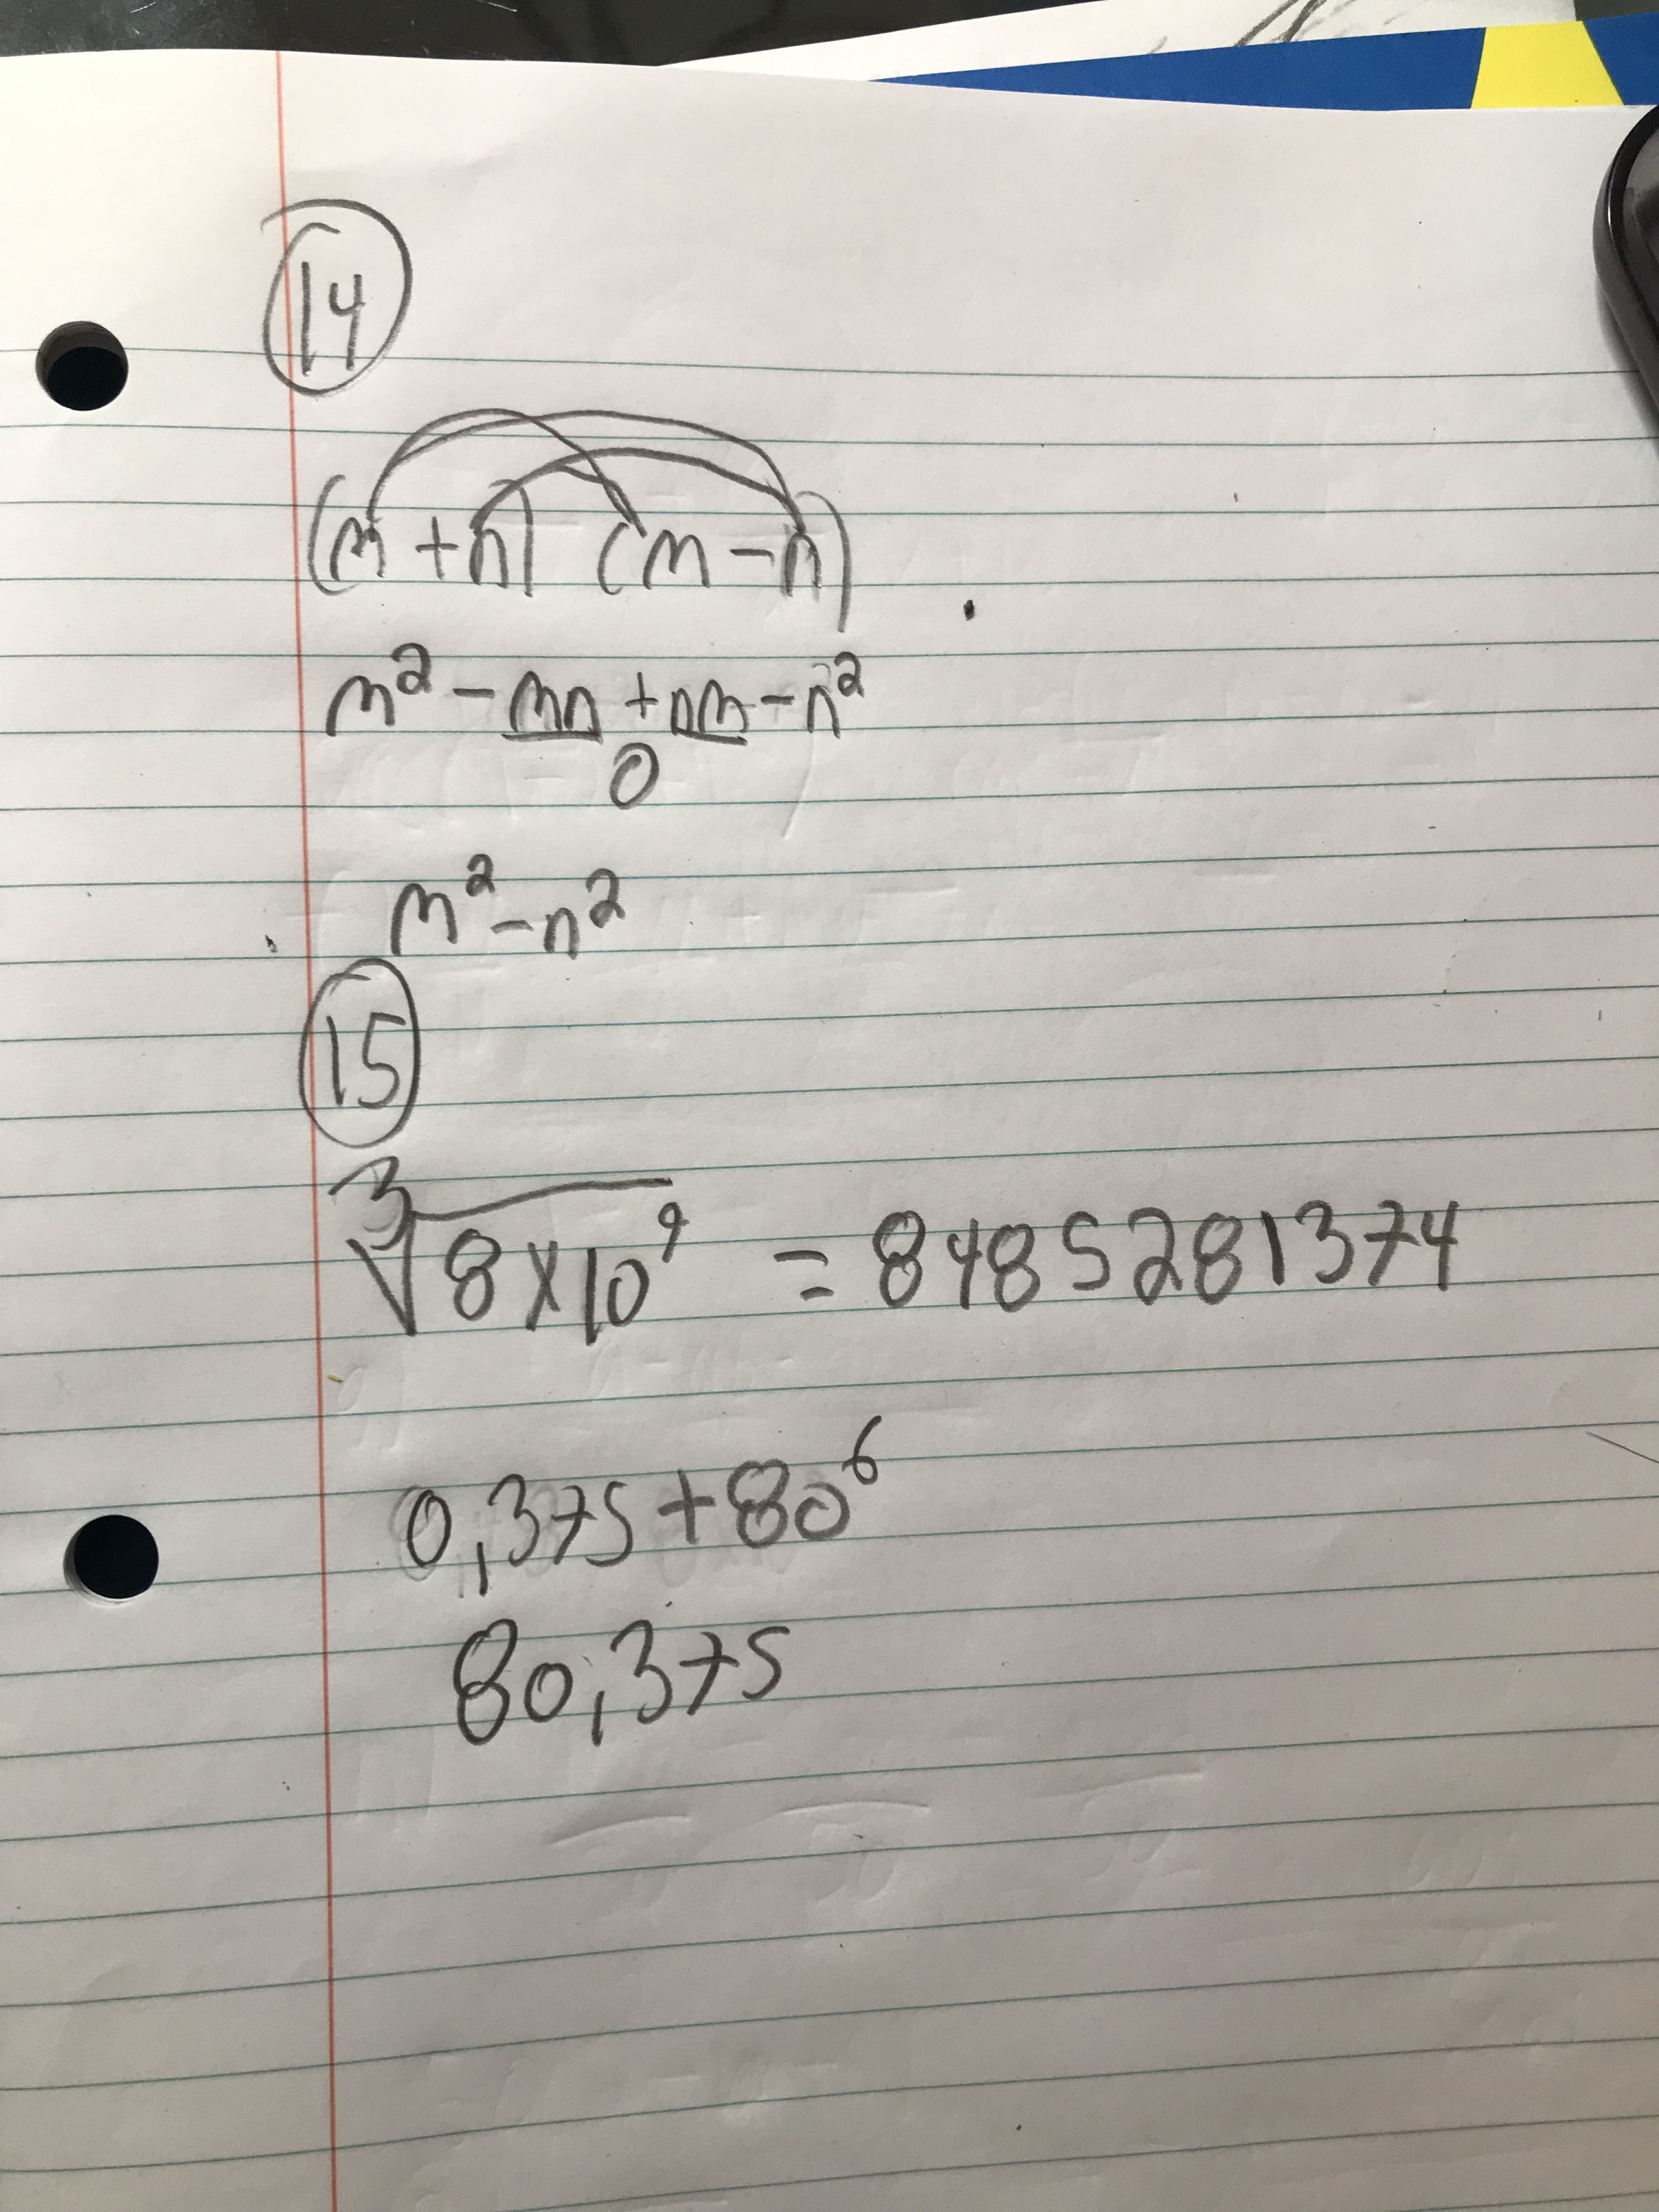 14
(m + n) (m - n)
m² - mn + nm - n²
0
m² - n²
15
∛8×10⁹ = 8485281374
0,375+80⁶
80,375